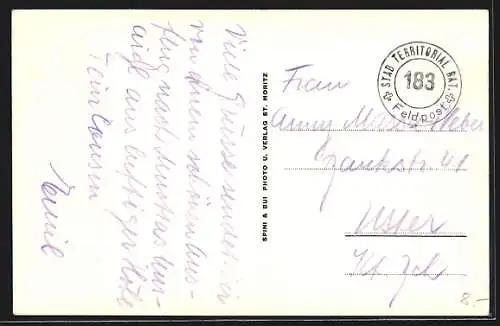 Viele Grüsse sendet dir
von einem schönen Aus-
flug nach Muottas Mur-
aigl aus luftiger Höhe
Dein Cousin
SPINI & BUI PHOTO U. VERLAG ST. MORITZ
STAB TERRITORIAL BAT.
183
Feldpost
Frau
Anny Weber
41
Uster
Kt. Zch
8.-